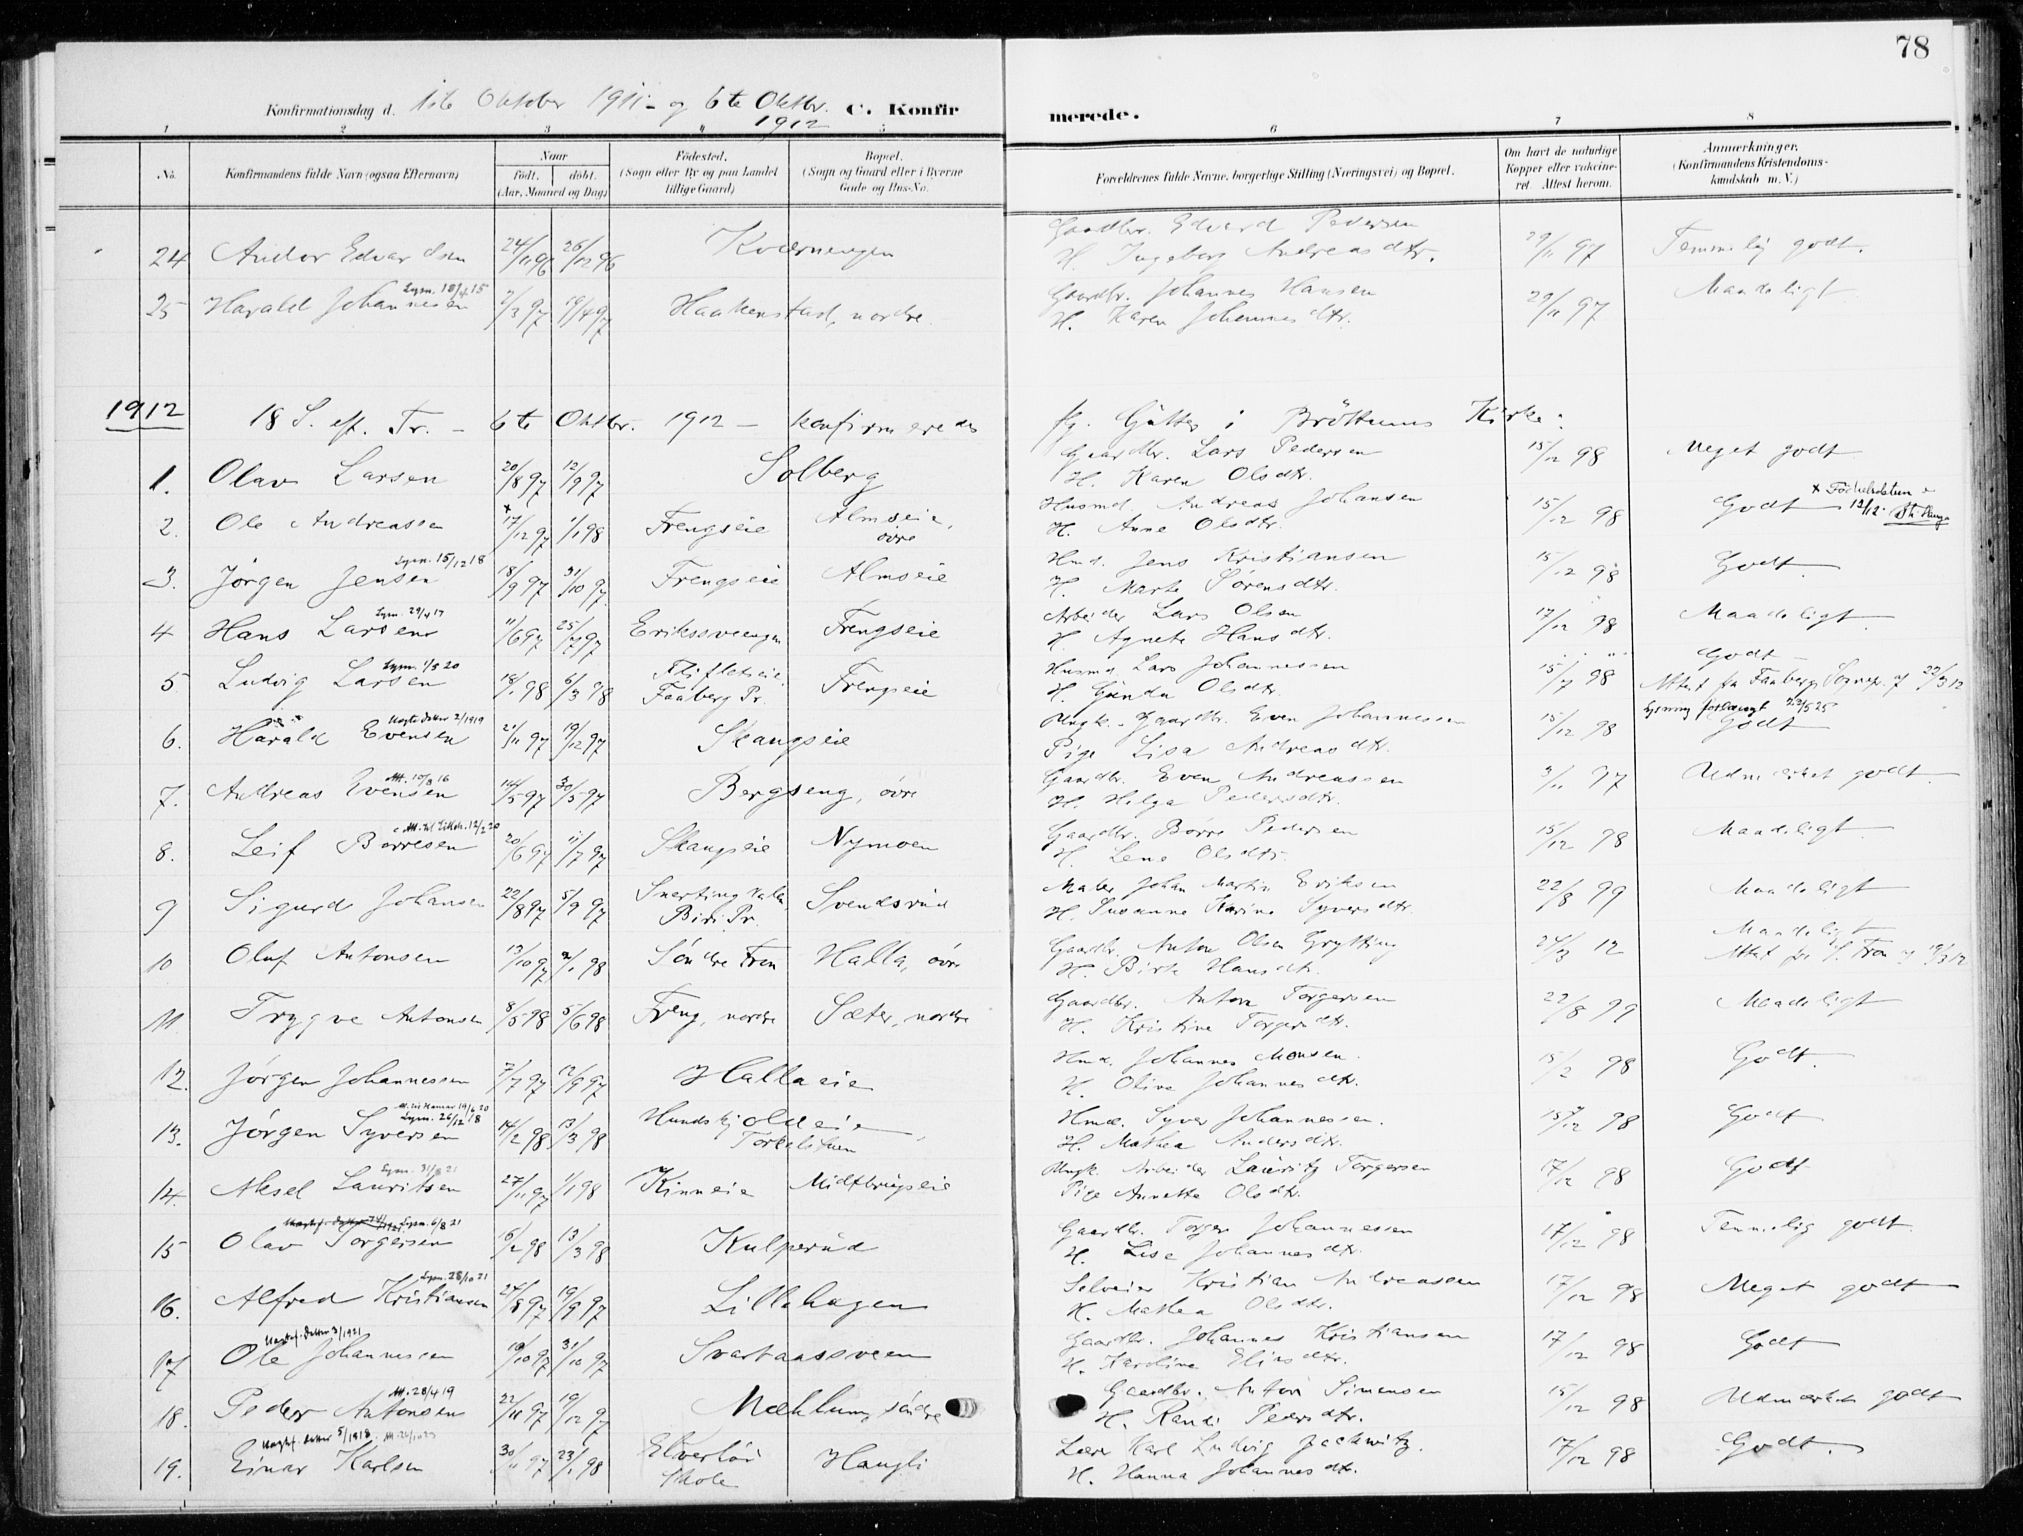 78
Konfirmationsdag d. 1ste Oktober 1911 - og 6te Oktbr. 1912 C. Konfirmerede.
1 2 3 4 5 6 7 8
No. Konfirmandens fulde Navn (ogsaa Efternavn) Naar født. døbt. (Aar, Maaned og Dag) Fødested. (Sogn eller By og paa Landet tillige Gaard) Bopæl. (Sogn og Gaard eller i Byerne Gade og Hus-No. Forældrenes fulde Navne, borgerlige Stilling (Næringsvei) og Bopæl. Om havt de naturlige Kopper eller vakcineret. Attest herom. Anmærkninger. (Konfirmandens Kristendomskundskab m. V.)
Gaardbr. Edvard Pedersen
24 Andor Edvardsen 24/11 96 26/12 96 Kværnengen H. Ingeborg Andreasdtr. 29/11 97 Temmelig godt.
Lysn. 18/4 15 Gaardbr. Johannes Hansen
25 Harald Johannesen 2/3 97 19/4 97 Haakenstad, nordre H. Karen Johannesdtr. 29/11 97 Maadeligt
1912 18 S. ef. Tr. - 6te Oktbr. 1912 - konfirmeredes fg. Gutter i Brøttums Kirke:
Gaardbr. Lars Pedersen
1. Olav Larsen 20/8 97 12/9 97 Solberg H. Karen Olsdtr. 15/12 98 Meget godt
Husmd. Andreas Johansen
2. Ole Andreassen x 17/12 97 1/1 98 Frengseie Almseie, øvre H. Anne Olsdtr. 15/12 98 Godt x Fødselsdatum 13/12.
Lysn. 15/12 18 Hmd. Jens Kristiansen
3. Jørgen Jensen 18/9 97 31/10 97 Frengseie Almseie H. Marte Sørensdtr. 15/12 98 Godt
Lysn. 29/4 17 Arbeider Lars Olsen
4 Hans Larsen 11/6 97 25/7 97 Erikssveengen Frengseie H. Agnete Hansdtr. 17/12 98 Maadeligt
Lysn. 1/5 20 Husmd. Lars Johannessen
5 Ludvig Larsen 18/1 98 6/3 98 Faaberg Pr. Frengseie H. Olsdtr. 15/7 98 Godt - Attest fra Faaberg Sognepr. af 22/3 12
2/1919 Ungk. Gaardbr. Even Johannessen Lysning forlangt 23/5 25
6. Harald Evensen 21/11 97 19/12 97 Skaugseie Pige Lisa Andreasdtr. 15/12 98 Godt
Att. 10/3 16 Gaardbr. Even Andreassen
7. Andreas Evensen 14/5 97 30/5 97 Bergseng, øvre H. Helga Pedersdtr. 3/11 97 Udmærket godt
Att. til Lilleh. 12/2 20 Gaardbr. Børre Pedersen
8. Leif Børresen 20/6 97 11/7 97 Skaugseie Nymoen H. Lene Olsdtr. 15/12 98 Maadeligt
Maler Johan Martin Eriksen
9 Sigurd Johansen 22/8 97 5/9 97 Biri Pr. Svendsrud H. Susanne Karine Syversdtr. 22/8 99 Maadeligt
Gaardbr. Anton Olsen Grytting Maadeligt
10 Oluf Antonsen 13/10 97 2/1 98 Søndre Fron Halla, øvre H. Birte Hansdtr. 27/3 12 Attest fra S. Fron af 19/3 12
Gaardbr. Anton Torgersen
11 Trygve Antonsen 8/5 98 5/6 98 Freng, nordre Sæter, nordre H. Kristine Torgersdtr. 22/8 99 Maadeligt
Hmd. Johannes Monsen.
12. Jørgen Johannessen 7/7 97 12/9 97 Hallaeie H. Oline Johannesdtr. 15/2 98 Godt.
Att. til Hamar 19/6 20
Lysn. 26/12 18 Hmd. Syver Johannessen.
13. Jørgen Syversen 14/2 98 13/3 98 Hundskjoldeie, Torkelstuen H. Mathea Andersdtr. 15/12 98 Godt
Lysn. 31/8 21 Ungk. Arbeider Lauritz Torgersen
14. Aksel Lauritsen 27/11 97 1/1 98 Kinneie Midtbrugseie Pige Annette Olsdtr. 17/12 98 Godt
Lysn. 6/8 21 Gaardbr. Torger Johannessen
15 Olav Torgersen 6/2 98 13/3 98 Kulperud H. Lise Johannesdtr. 17/12 98 Temmelig godt
Lysn. 28/10 21 Selveier Kristian Andreassen
16. Alfred Kristiansen 27/8 97 19/9 97 Lillehagen H. Mathea Olsdtr. 17/12 98 Meget godt
3/1921 Gaardbr. Johannes Kristiansen
17 Ole Johannessen 10/10 97 31/10 97 Svartaassveen H. Karoline Eliasdtr. 17/12 98 Godt
Att. 28/4 19 Gaardbr. Anton Simensen
18. Peder Antonsen 22/11 97 19/12 97 Mæhlum, søndre H. Randi Pedersdtr. 15/12 98 Udmærket godt
5/1918 Lærer Karl Ludvig Jackwitz.
19. Einar Karlsen 30/11 97 23/1 98 Skole Haugli H. Hanna Johannesdtr. 17/12 98 Godt.